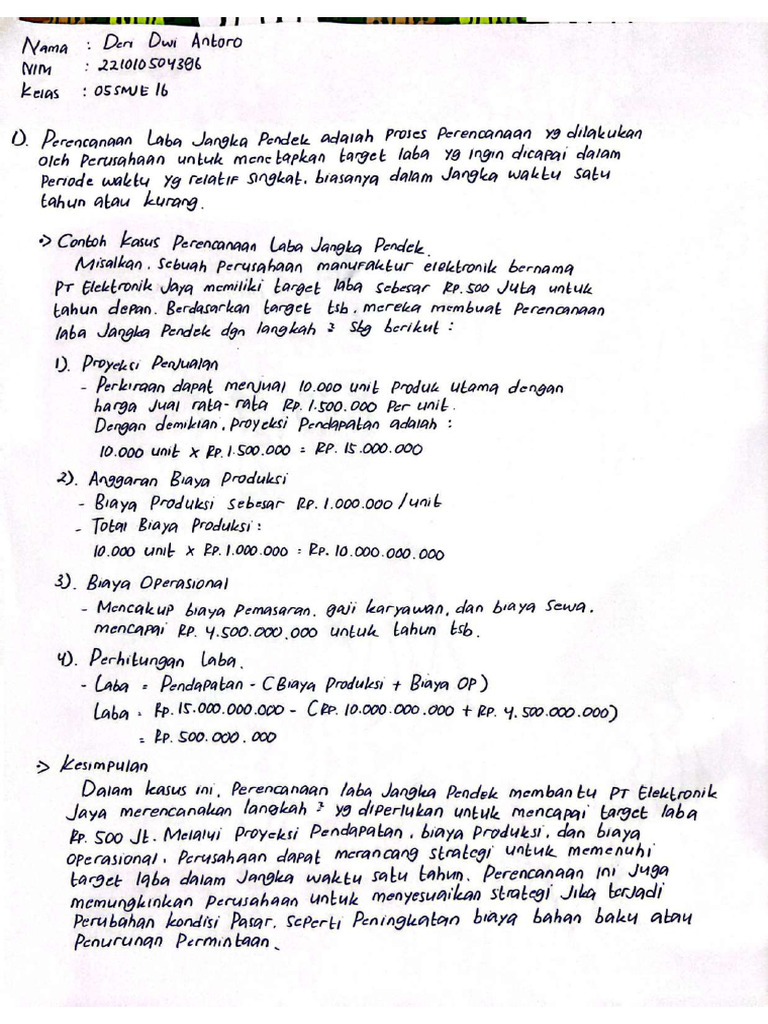 Nama : Deri Dwi Antoro
NIM : 221010504396
Kelas : 05SMJE16
1). Perencanaan Laba Jangka Pendek adalah proses Perencanaan yg dilakukan
oleh Perusahaan untuk menetapkan target laba yg ingin dicapai dalam
Periode waktu yg relatif singkat, biasanya dalam Jangka waktu satu
tahun atau kurang.
•> Contoh Kasus Perencanaan Laba Jangka Pendek.
Misalkan, sebuah perusahaan manufaktur elektronik bernama
PT Elektronik Jaya memiliki target laba sebesar Rp. 500 Juta untuk
tahun depan. Berdasarkan target tsb, mereka membuat Perencanaan
laba Jangka Pendek dgn langkah ² sbg berikut :
1). Proyeksi Penjualan
- Perkiraan dapat menjual 10.000 unit Produk utama dengan
harga Jual rata-rata Rp. 1.500.000 Per unit.
Dengan demikian, Proyeksi Pendapatan adalah :
10.000 unit x Rp. 1.500.000 = Rp. 15.000.000
2). Anggaran Biaya Produksi
- Biaya Produksi sebesar Rp. 1.000.000 /unit
- Total Biaya Produksi :
10.000 unit x Rp. 1.000.000 = Rp. 10.000.000.000
3). Biaya Operasional
- Mencakup biaya pemasaran, gaji karyawan, dan biaya sewa,
mencapai Rp. 4.500.000.000 untuk tahun tsb.
4). Perhitungan Laba.
- Laba = Pendapatan - (Biaya Produksi + Biaya OP)
Laba = Rp. 15.000.000.000 - (Rp. 10.000.000.000 + Rp. 4.500.000.000)
= Rp. 500.000.000
•> Kesimpulan
Dalam kasus ini, Perencanaan laba Jangka Pendek membantu PT Elektronik
Jaya merencanakan langkah ² yg diperlukan untuk mencapai target laba
Rp. 500 Jt. Melalui Proyeksi Pendapatan, biaya Produksi, dan biaya
operasional, Perusahaan dapat merancang strategi untuk memenuhi
target laba dalam Jangka waktu satu tahun. Perencanaan ini Juga
memungkinkan Perusahaan untuk menyesuaikan strategi Jika terjadi
Perubahan kondisi Pasar, seperti Peningkatan biaya bahan baku atau
Penurunan Permintaan.